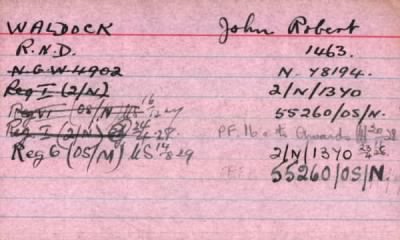 WALDOCK John Robert
R.N.D. 1463.
N G W 4902 N. Y8194.
Reg I (2/N) 2/N/1340
Reg VI OS/N MS 16/12-27 55260/OS/N.
Reg I (2/N) 24/4-28 P.F. 16
Reg 6 (OS/M) MS 14/8 29 2/N/1340
55260/OS/N.